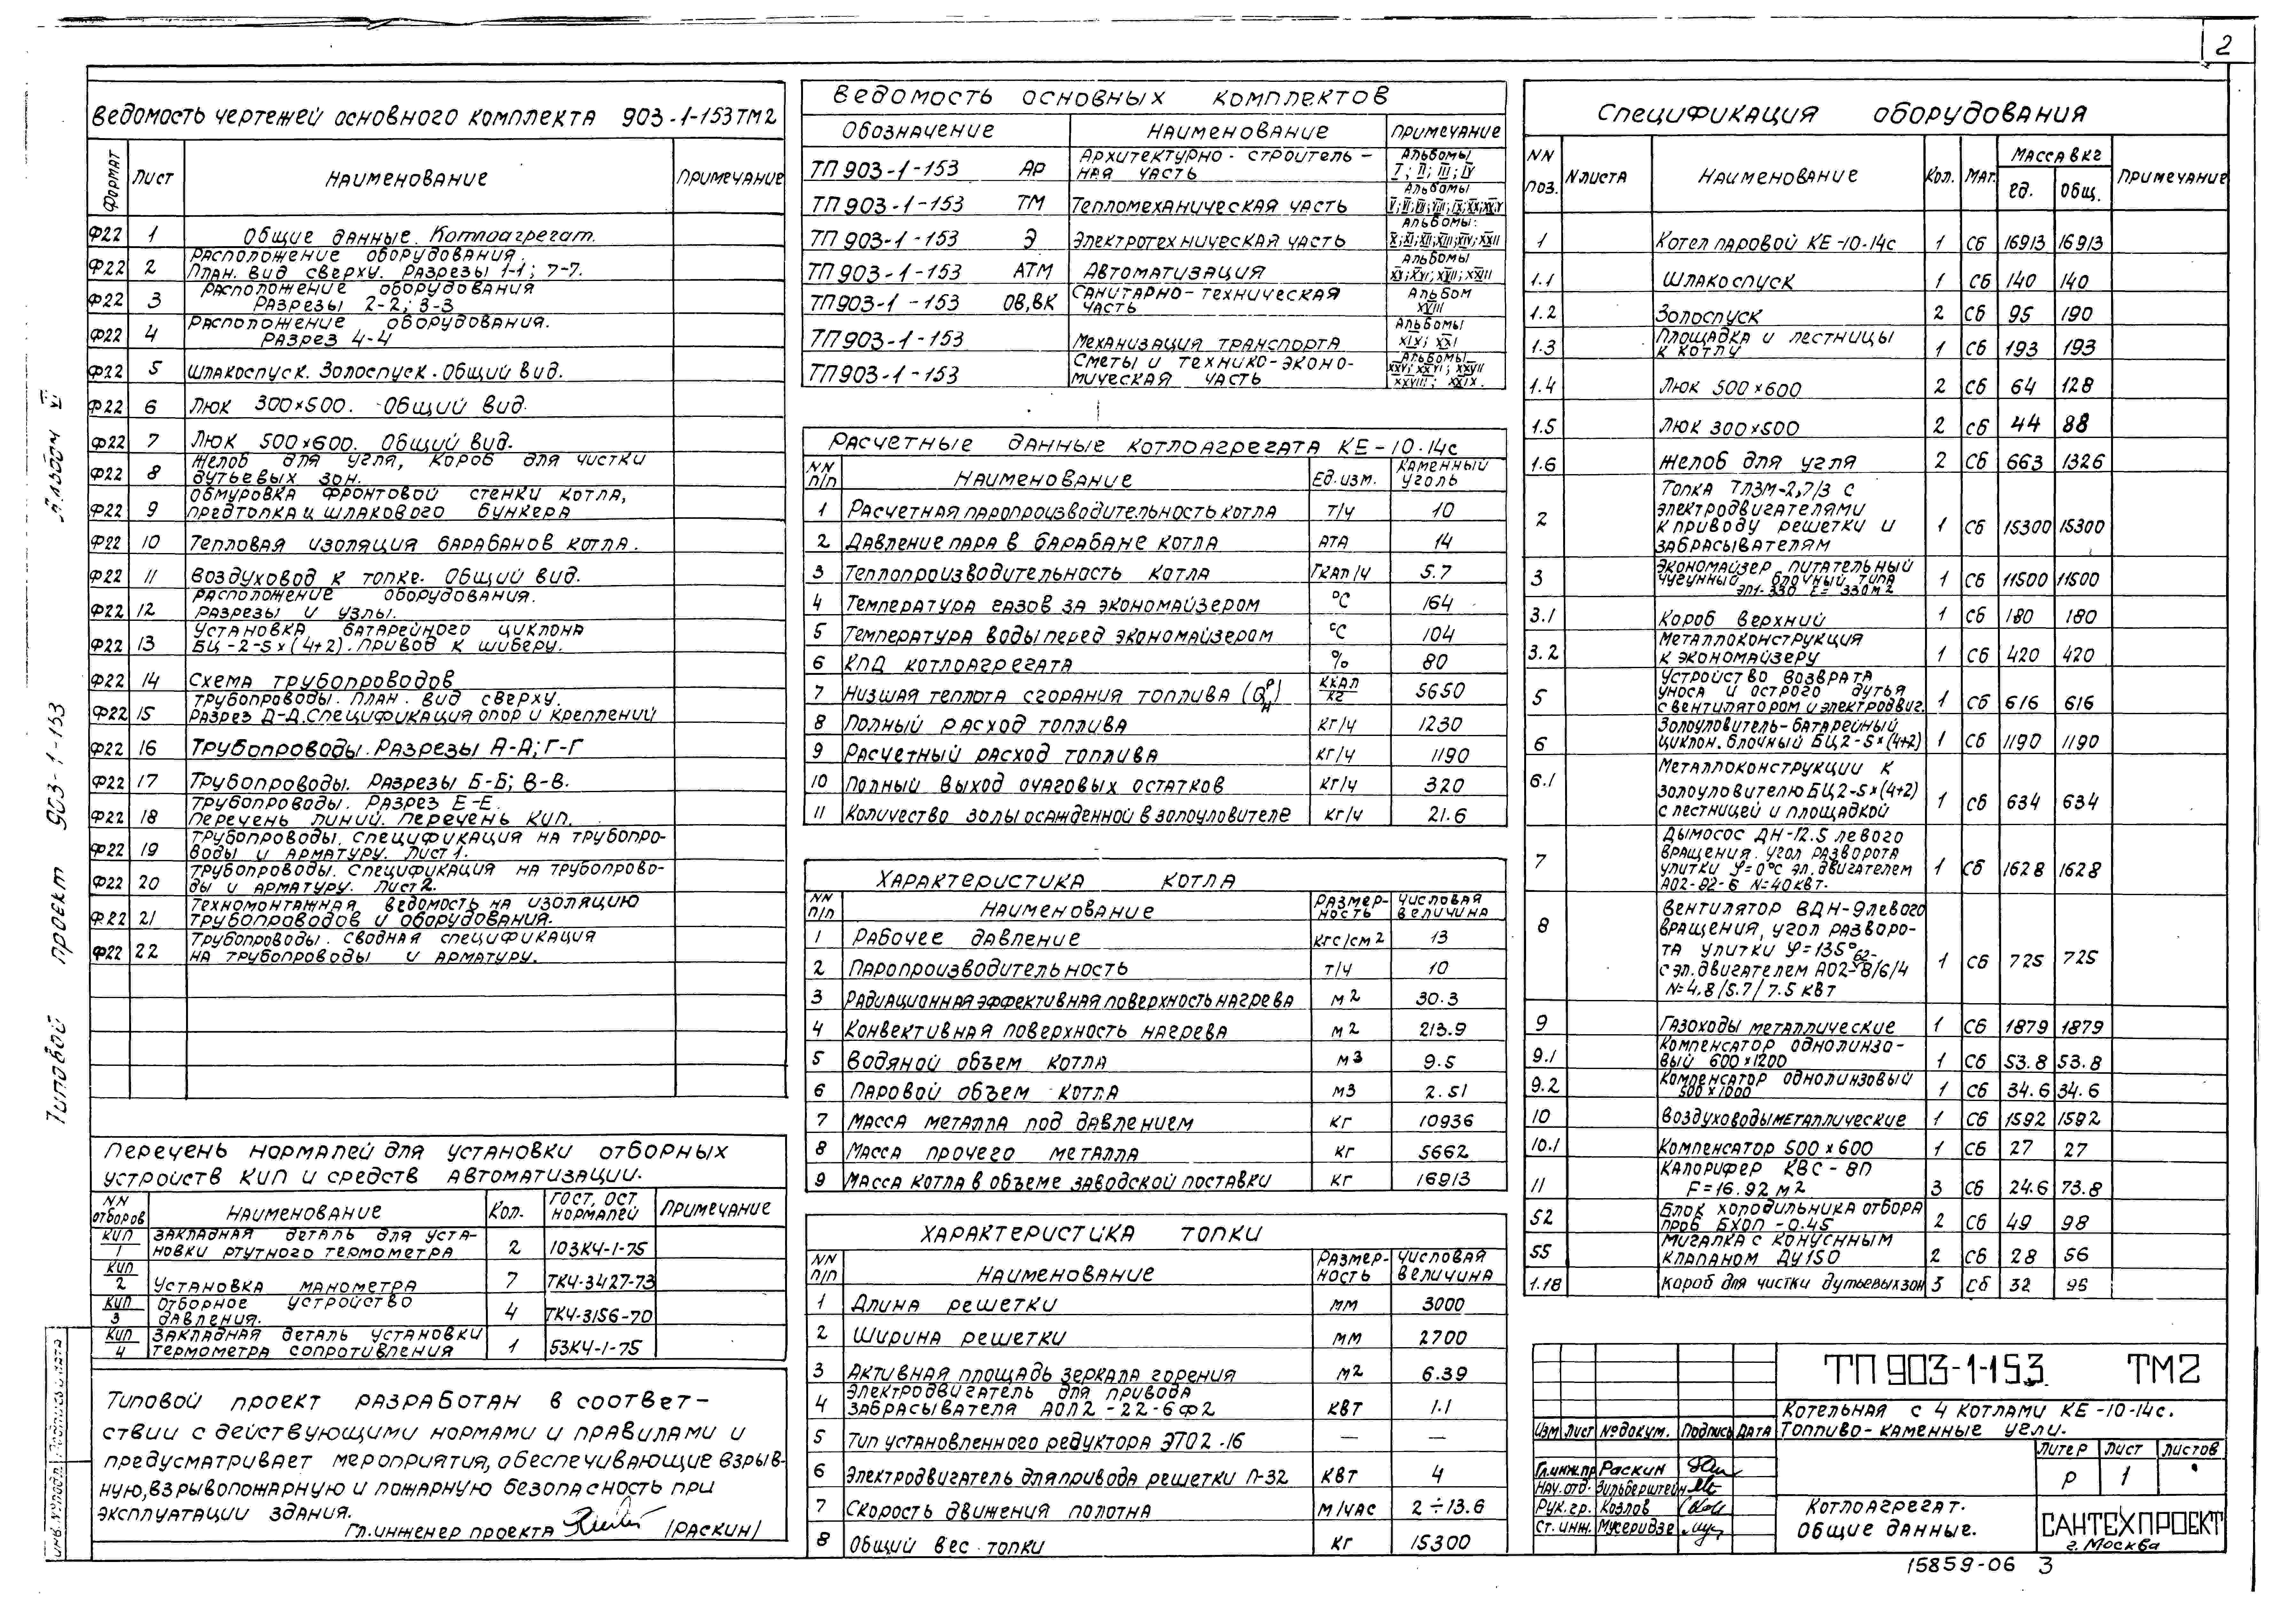 2
Ведомость чертежей основного комплекта 903-1-153ТМ2
Формат Лист Наименование Примечание
Ф22 1 Общие данные. Котлоагрегат.
Ф22 2 Расположение оборудования.
План. Вид сверху. Разрезы 1-1; 7-7.
Ф22 3 Расположение оборудования
Разрезы 2-2; 3-3
Ф22 4 Расположение оборудования.
Разрез 4-4
Ф22 5 Шлакоспуск. Золоспуск. Общий вид.
Ф22 6 Люк 300×500. Общий вид.
Ф22 7 Люк 500×600. Общий вид.
Ф22 8 Желоб для угля, короб для чистки
дутьевых зон.
Ф22 9 Обмуровка фронтовой стенки котла,
предтопка и шлакового бункера
Ф22 10 Тепловая изоляция барабанов котла.
Ф22 11 Воздуховод к топке. Общий вид.
Ф22 12 Расположение оборудования.
Разрезы и узлы.
Ф22 13 Установка батарейного циклона
БЦ-2-5×(4+2). Привод к шиберу.
Ф22 14 Схема трубопроводов
Ф22 15 Трубопроводы. План. Вид сверху.
Разрез Д-Д. Спецификация опор и креплений
Ф22 16 Трубопроводы. Разрезы А-А; Г-Г
Ф22 17 Трубопроводы. Разрезы Б-Б; В-В.
Ф22 18 Трубопроводы. Разрез Е-Е.
Перечень линий. Перечень КИП.
Ф22 19 Трубопроводы. Спецификация на трубопро-
воды и арматуру. Лист 1.
Ф22 20 Трубопроводы. Спецификация на трубопрово-
ды и арматуру. Лист 2.
Ф22 21 Техномонтажная ведомость на изоляцию
трубопроводов и оборудования.
Ф22 22 Трубопроводы. Сводная спецификация
на трубопроводы и арматуру.
Перечень нормалей для установки отборных
устройств КИП и средств автоматизации.
NN отборов Наименование Кол. ГОСТ, ОСТ нормалей Примечание
КИП 1 Закладная деталь для уста-
новки ртутного термометра 2 103КЧ-1-75
КИП 2 Установка манометра 7 ТКЧ-3427-73
КИП 3 Отборное устройство
давления. 4 ТКЧ-3156-70
КИП 4 Закладная деталь установки
термометра сопротивления 1 53КЧ-1-75
Типовой проект разработан в соответ-
ствии с действующими нормами и правилами и
предусматривает мероприятия, обеспечивающие взрыв-
ную, взрывопожарную и пожарную безопасность при
эксплуатации здания.
Гл. инженер проекта /Раскин/
Типовой проект 903-1-153 Альбом VI
Ведомость основных комплектов
Обозначение Наименование Примечание
ТП 903-1-153 АР Архитектурно-строитель-
ная часть Альбомы I; II; III; IV
ТП 903-1-153 ТМ Тепломеханическая часть Альбомы
ТП 903-1-153 Э Электротехническая часть Альбомы:
ТП 903-1-153 АТМ Автоматизация Альбомы
ТП903-1-153 ОВ,ВК Санитарно-техническая
часть Альбом XVIII
ТП903-1-153 Механизация транспорта Альбомы XIX; XXI
ТП903-1-153 Сметы и технико-эконо-
мическая часть Альбомы XXV; XXVI; XXVII XXVIII; XXIX.
Расчетные данные котлоагрегата КЕ-10-14с
NN п/п Наименование Ед. изм. Каменный уголь
1 Расчетная паропроизводительность котла т/ч 10
2 Давление пара в барабане котла ата 14
3 Теплопроизводительность котла Гкал/ч 5.7
4 Температура газов за экономайзером °С 164
5 Температура воды перед экономайзером °С 104
6 КПД котлоагрегата % 80
7 Низшая теплота сгорания топлива (Qрн) ккал/кг 5650
8 Полный расход топлива кг/ч 1230
9 Расчетный расход топлива кг/ч 1190
10 Полный выход очаговых остатков кг/ч 320
11 Количество золы осажденной в золоуловителе кг/ч 21.6
Характеристика котла
NN п/п Наименование Размер-ность Числовая величина
1 Рабочее давление кгс/см2 13
2 Паропроизводительность т/ч 10
3 Радиационная эффективная поверхность нагрева м2 30.3
4 Конвективная поверхность нагрева м2 213.9
5 Водяной объем котла м3 9.5
6 Паровой объем котла м3 2.51
7 Масса металла под давлением кг 10936
8 Масса прочего металла кг 5662
9 Масса котла в объеме заводской поставки кг 16913
Характеристика топки
NN п/п Наименование Размер-ность Числовая величина
1 Длина решетки мм 3000
2 Ширина решетки мм 2700
3 Активная площадь зеркала горения м2 6.39
4 Электродвигатель для привода
забрасывателя АОЛ2-22-6Ф2 кВт 1.1
5 Тип установленного редуктора ЭТО2-16 — —
6 Электродвигатель для привода решетки П-32 кВт 4
7 Скорость движения полотна м/час 2÷13.6
8 Общий вес топки кг 15300
Спецификация оборудования
NN поз. N листа Наименование Кол. Мат. Масса в кг ед. Общ. Примечание
1 Котел паровой КЕ-10-14с 1 Сб 16913 16913
1.1 Шлакоспуск 1 Сб 140 140
1.2 Золоспуск 2 Сб 95 190
1.3 Площадка и лестницы
к котлу 1 Сб 193 193
1.4 Люк 500×600 2 Сб 64 128
1.5 Люк 300×500 2 Сб 44 88
1.6 Желоб для угля 2 Сб 663 1326
2 Топка ТЛЗМ-2,7/3 с
электродвигателями
к приводу решетки и
забрасывателям 1 Сб 15300 15300
3 Экономайзер питательный
чугунный блочный типа
ЭП1-330 F=330м2 1 Сб 11500 11500
3.1 Короб верхний 1 Сб 180 180
3.2 Металлоконструкция
к экономайзеру 1 Сб 420 420
5 Устройство возврата
уноса и острого дутья
с вентилятором и электродвиг. 1 Сб 616 616
6 Золоуловитель-батарейный
циклон. блочный БЦ2-5×(4+2) 1 Сб 1190 1190
6.1 Металлоконструкции к
золоуловителю БЦ2-5×(4+2)
с лестницей и площадкой 1 Сб 634 634
7 Дымосос ДН-12.5 левого
вращения. угол разворота
улитки φ=0°С эл. двигателем
АО2-82-6 N=40кВт. 1 Сб 1628 1628
8 Вентилятор ВДН-9левого
вращения, угол разворо-
та улитки φ=135°
с эл. двигателем АО2-62-8/6/4
N=4.8/5.7/7.5 кВт 1 Сб 725 725
9 Газоходы металлические 1 Сб 1879 1879
9.1 Компенсатор однолинзо-
вый 600×1200 1 Сб 53.8 53.8
9.2 Компенсатор однолинзовый
500×1000 1 Сб 34.6 34.6
10 Воздуховоды металлические 1 Сб 1592 1592
10.1 Компенсатор 500×600 1 Сб 27 27
11 Калорифер КВС-8П
F=16.92 м2 3 Сб 24.6 73.8
52 Блок холодильника отбора
проб БХОП-0.45 2 Сб 49 98
55 Мигалка с конусным
клапаном Ду150 2 Сб 28 56
1.18 Короб для чистки дутьевых зон 3 Сб 32 96
ТП 903-1-153 ТМ2
Котельная с 4 котлами КЕ-10-14с.
Топливо-каменные угли.
Изм Лист №докум. Подпись Дата
Литер Лист Листов
Р 1
Гл.инж.пр Раскин
Нач.отд. Зильберштейн
Рук.гр. Козлов
Ст. инж. Мусеридзе
Котлоагрегат.
Общие данные.
САНТЕХПРОЕКТ
г. Москва
15859-06 3